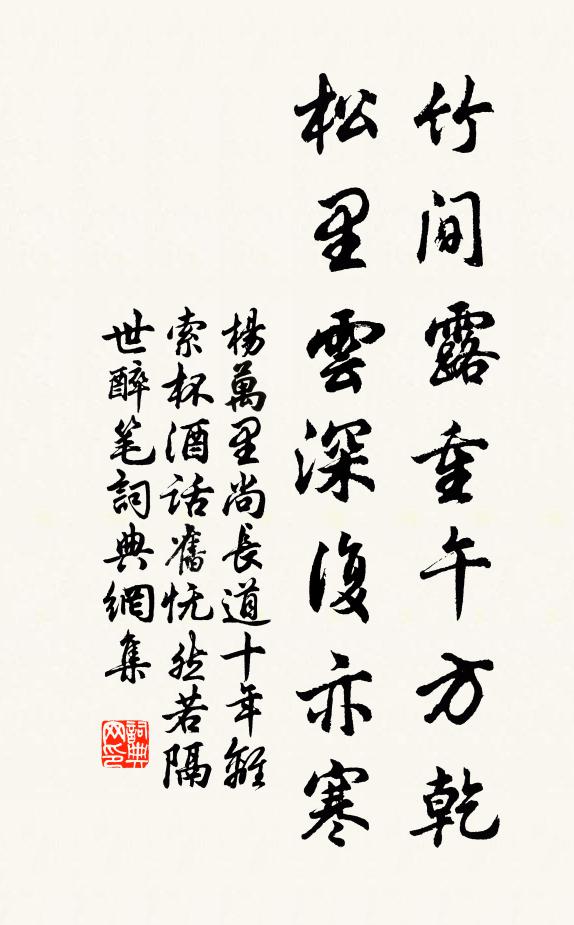 竹間露重午方乾
松里雲深復亦寒
楊萬里尚長道十年離
索杯酒話舊恍然若隔
世醉笔詞典網集
詞典网印